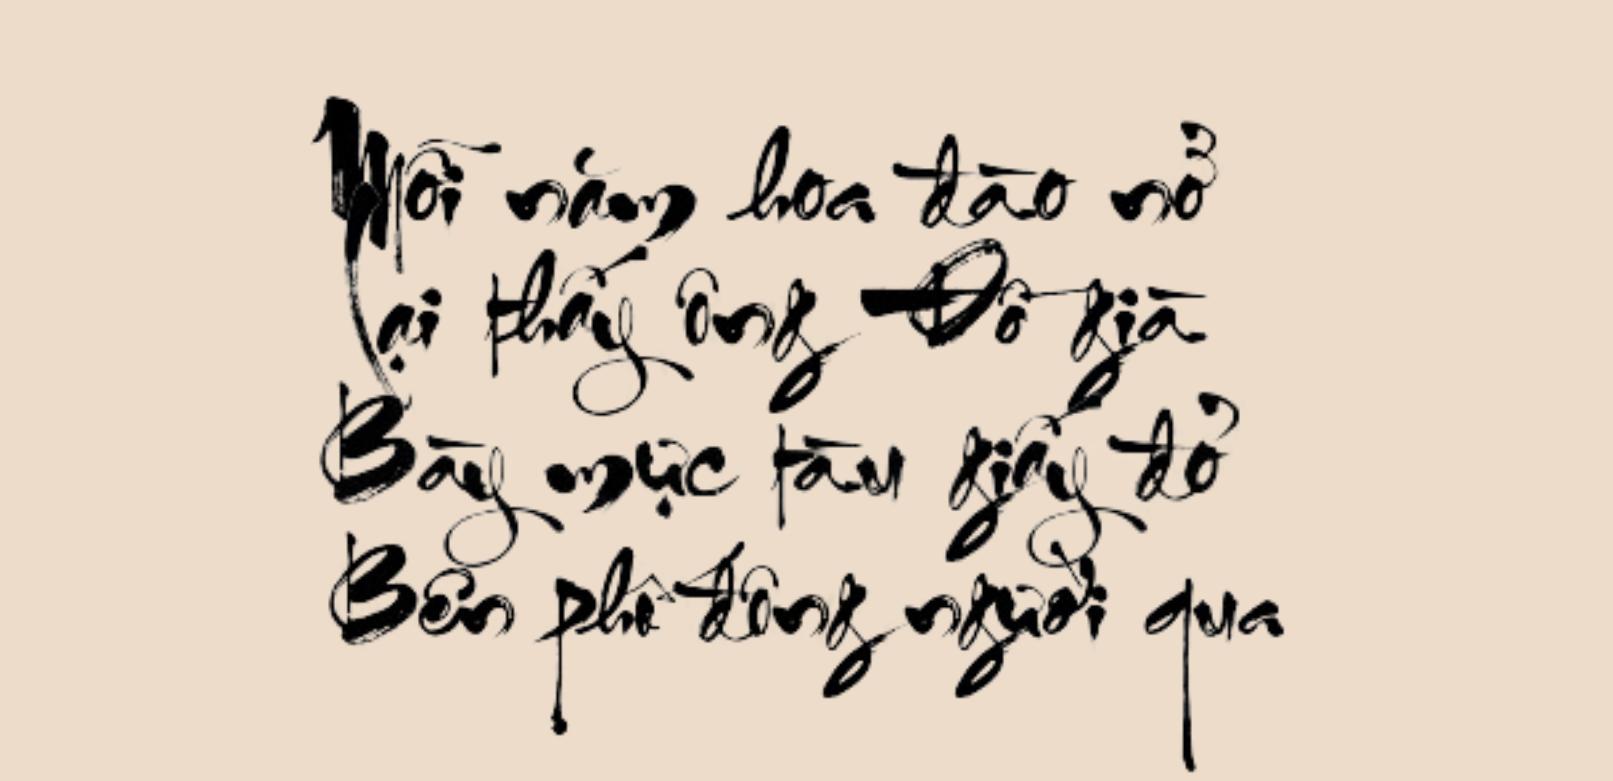 Mỗi năm hoa đào nở
Lại thấy ông Đồ già
Bày mực tàu giấy đỏ
Bên phố đông người qua